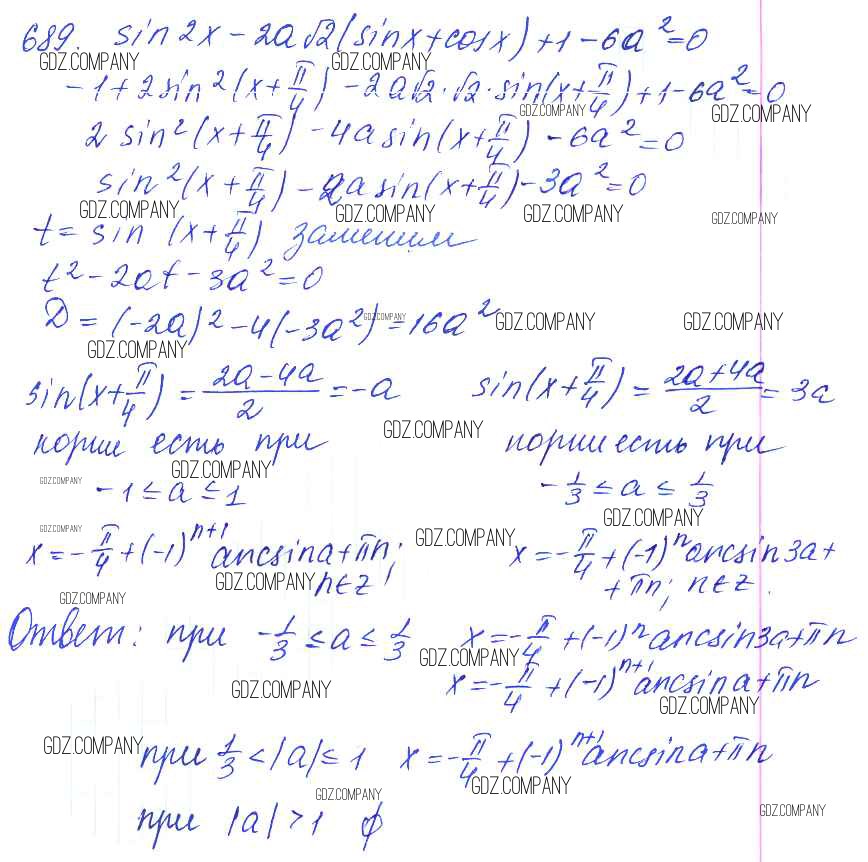 689. sin2x - 2a√2(sinx+cosx)+1-6a²=0
GDZ.COMPANY GDZ.COMPANY
-1+2sin²(x+π/4) -2a√2·√2·sin(x+π/4)+1-6a²=0
GDZ.COMPANY GDZ.COMPANY
2 sin²(x+π/4) -4a sin(x+π/4) -6a²=0
sin²(x+π/4) -2a sin(x+π/4)-3a²=0
GDZ.COMPANY GDZ.COMPANY GDZ.COMPANY GDZ.COMPANY
t= sin (x+π/4) заменим
t²-2at-3a²=0
D = (-2a)²-4(-3a²)=16a²
GDZ.COMPANY GDZ.COMPANY GDZ.COMPANY
GDZ.COMPANY
sin(x+π/4) = (2a-4a)/2 = -a sin(x+π/4) = (2a+4a)/2 = 3a
GDZ.COMPANY
корни есть при корни есть при
GDZ.COMPANY
GDZ.COMPANY
-1≤a≤1 -1/3 ≤ a ≤ 1/3
GDZ.COMPANY
GDZ.COMPANY GDZ.COMPANY
x=-π/4+(-1)ⁿ⁺¹ arcsina+πn; x=-π/4+(-1)ⁿarcsin3a+
GDZ.COMPANY
n∈z +πn; n∈z.
GDZ.COMPANY
Ответ: при -1/3 ≤ a ≤ 1/3 x=-π/4+(-1)ⁿarcsin3a+πn
GDZ.COMPANY
x=-π/4+(-1)ⁿ⁺¹arcsina+πn
GDZ.COMPANY GDZ.COMPANY
GDZ.COMPANY
при 1/3<|a|≤1 x=-π/4+(-1)ⁿ⁺¹arcsina+πn
GDZ.COMPANY
GDZ.COMPANY GDZ.COMPANY
при |a|>1 ∅